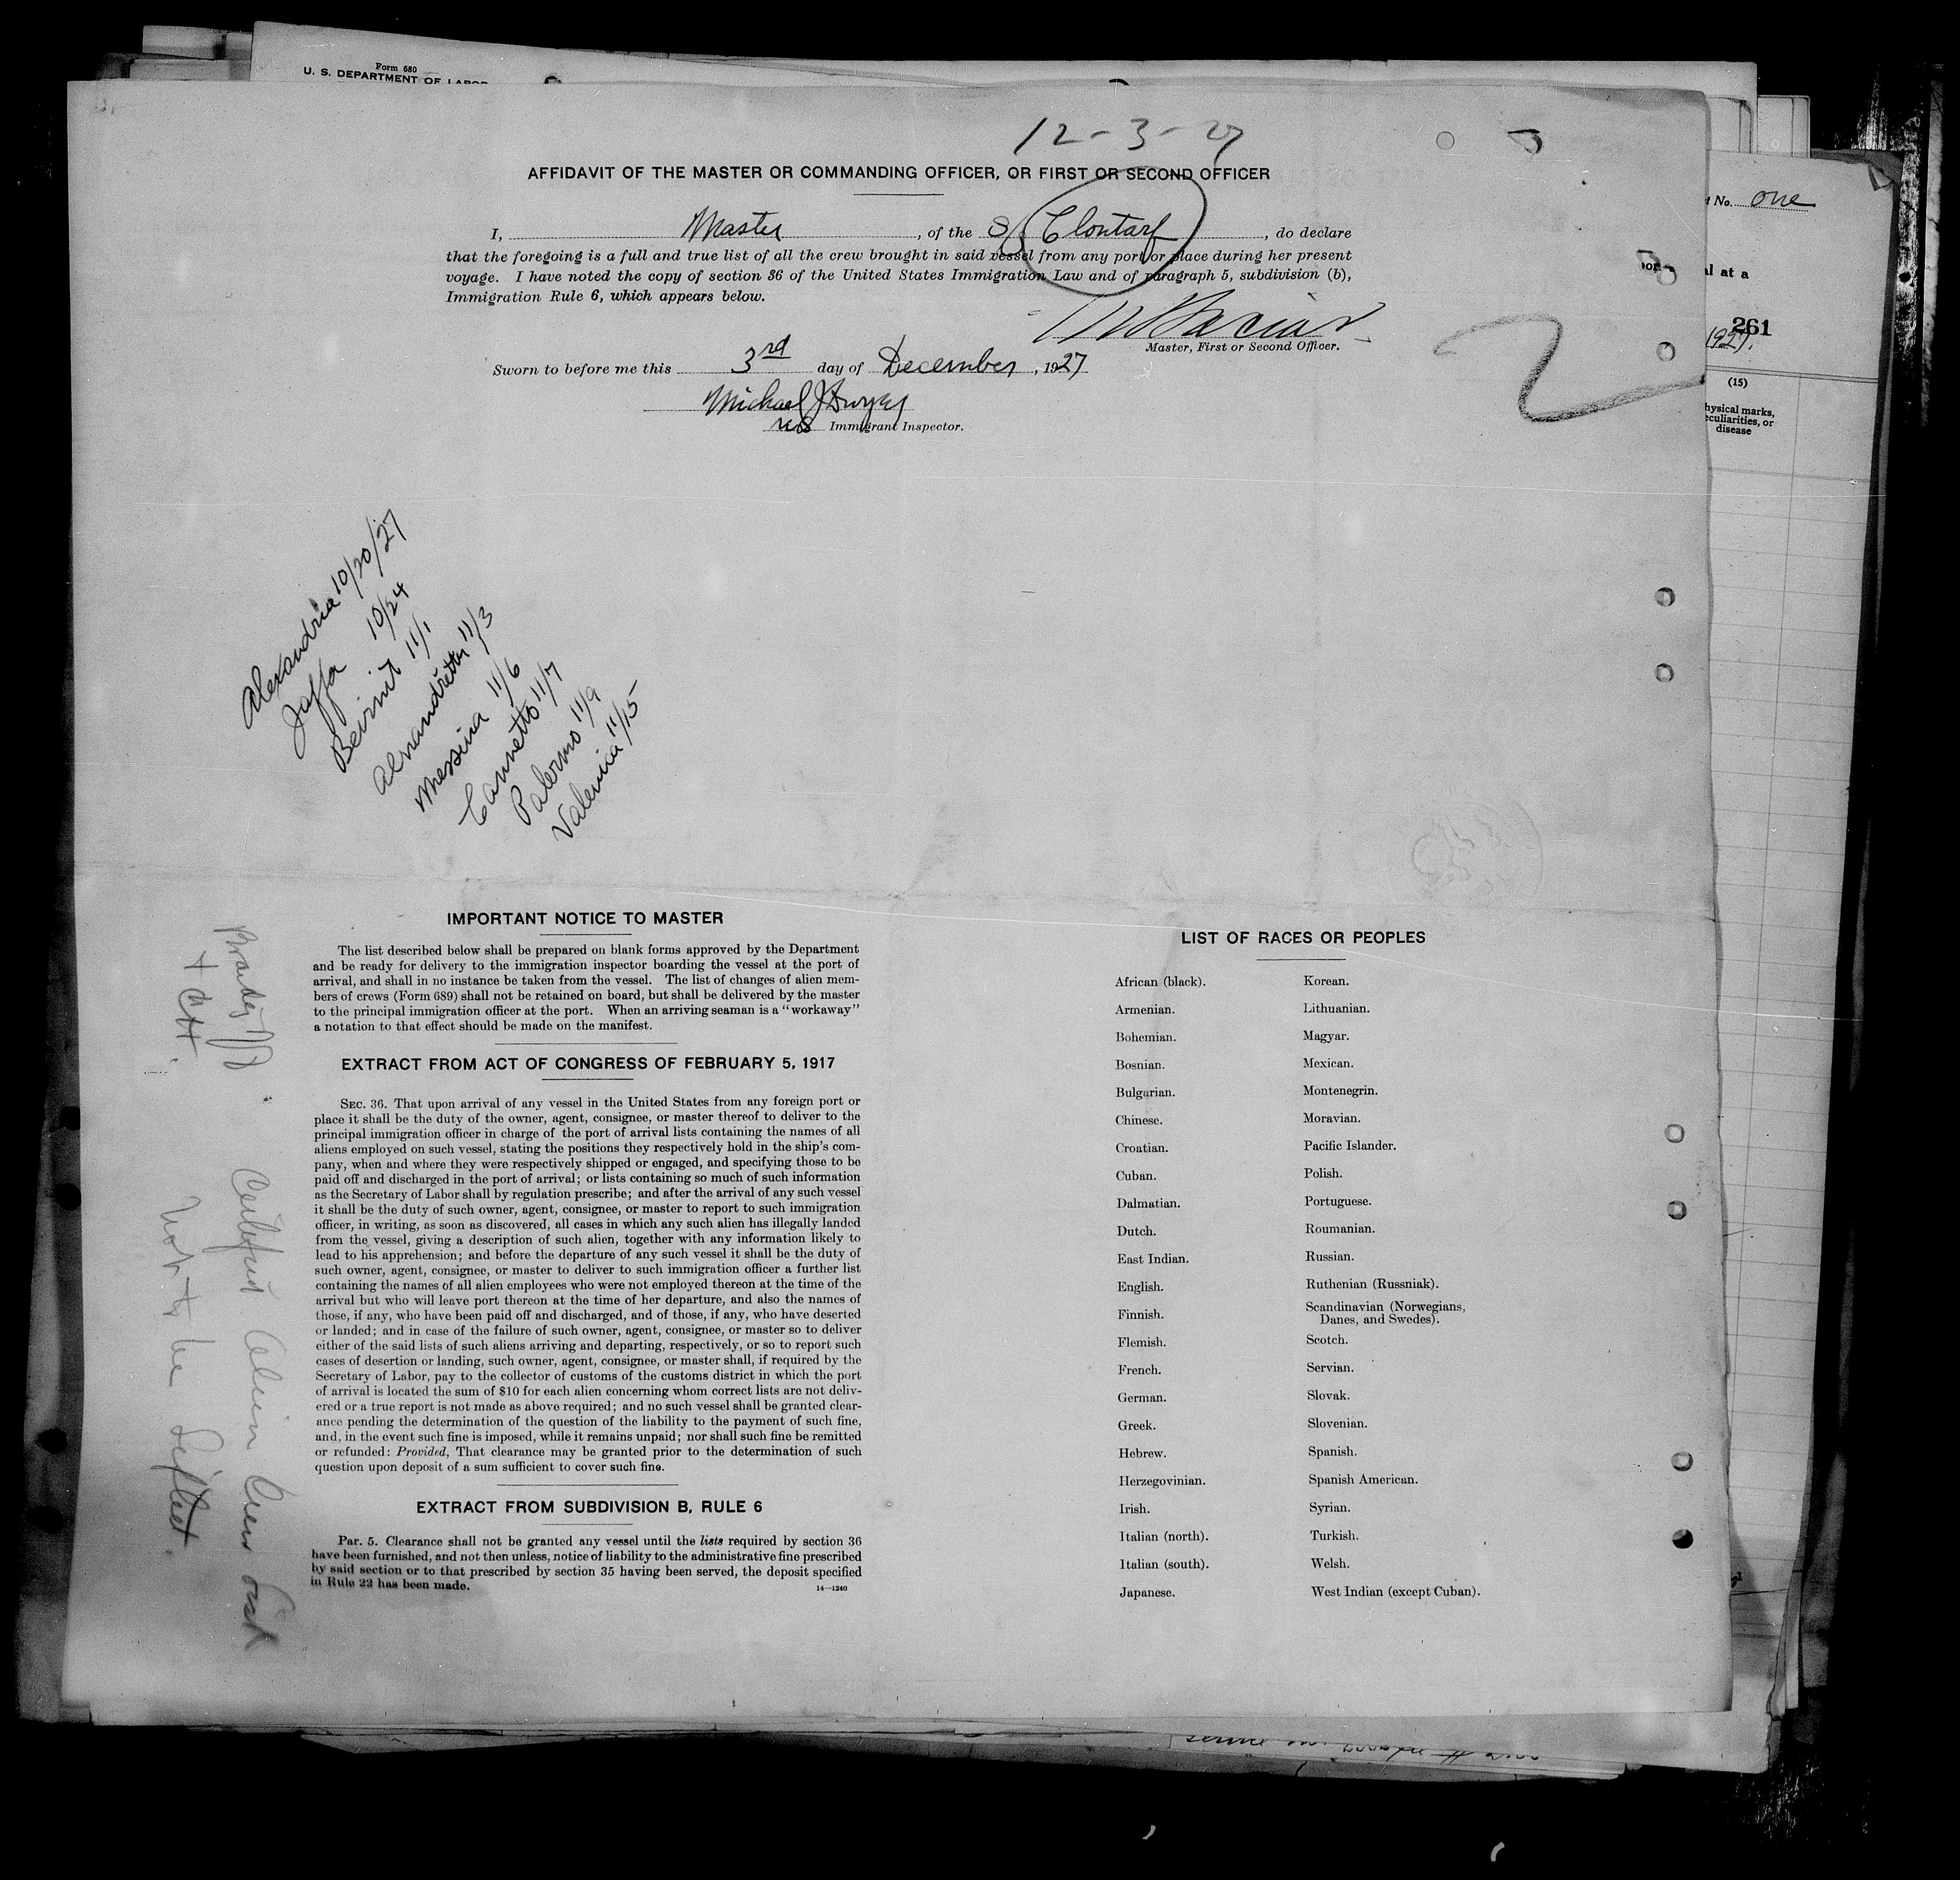 Form 680
U. S. DEPARTMENT OF LABOR
12-3-27
AFFIDAVIT OF THE MASTER OR COMMANDING OFFICER, OR FIRST OR SECOND OFFICER
I, Master, of the SS Clontarf, do declare
that the foregoing is a full and true list of all the crew brought in said vessel from any port or place during her present
voyage. I have noted the copy of section 36 of the United States Immigration Law and of paragraph 5, subdivision (b),
Immigration Rule 6, which appears below.
Master, First or Second Officer.
Sworn to before me this 3rd day of December, 1927
Michael J Dwyer
Immigrant Inspector.
Alexandria 10/20/27
Jaffa 10/24
Beirut 11/1
Alexandretta 11/3
Messina 11/6
Cannetto 11/7
Palermo 11/9
Valencia 11/15
IMPORTANT NOTICE TO MASTER
The list described below shall be prepared on blank forms approved by the Department
and be ready for delivery to the immigration inspector boarding the vessel at the port of
arrival, and shall in no instance be taken from the vessel. The list of changes of alien mem-
bers of crews (Form 689) shall not be retained on board, but shall be delivered by the master
to the principal immigration officer at the port. When an arriving seaman is a "workaway"
a notation to that effect should be made on the manifest.
EXTRACT FROM ACT OF CONGRESS OF FEBRUARY 5, 1917
SEC. 36. That upon arrival of any vessel in the United States from any foreign port or
place it shall be the duty of the owner, agent, consignee, or master thereof to deliver to the
principal immigration officer in charge of the port of arrival lists containing the names of all
aliens employed on such vessel, stating the positions they respectively hold in the ship's com-
pany, when and where they were respectively shipped or engaged, and specifying those to be
paid off and discharged in the port of arrival; or lists containing so much of such information
as the Secretary of Labor shall by regulation prescribe; and after the arrival of any such vessel
it shall be the duty of such owner, agent, consignee, or master to report to such immigration
officer, in writing, as soon as discovered, all cases in which any such alien has illegally landed
from the vessel, giving a description of such alien, together with any information likely to
lead to his apprehension; and before the departure of any such vessel it shall be the duty of
such owner, agent, consignee, or master to deliver to such immigration officer a further list
containing the names of all alien employees who were not employed thereon at the time of the
arrival but who will leave port thereon at the time of her departure, and also the names of
those, if any, who have been paid off and discharged, and of those, if any, who have deserted
or landed; and in case of the failure of such owner, agent, consignee, or master so to deliver
either of the said lists of such aliens arriving and departing, respectively, or so to report such
cases of desertion or landing, such owner, agent, consignee, or master shall, if required by the
Secretary of Labor, pay to the collector of customs of the customs district in which the port
of arrival is located the sum of $10 for each alien concerning whom correct lists are not deliv-
ered or a true report is not made as above required; and no such vessel shall be granted clear-
ance pending the determination of the question of the liability to the payment of such fine,
and, in the event such fine is imposed, while it remains unpaid; nor shall such fine be remitted
or refunded: Provided, That clearance may be granted prior to the determination of such
question upon deposit of a sum sufficient to cover such fine.
EXTRACT FROM SUBDIVISION B, RULE 6
Par. 5. Clearance shall not be granted any vessel until the lists required by section 36
have been furnished, and not then unless, notice of liability to the administrative fine prescribed
by said section or to that prescribed by section 35 having been served, the deposit specified
in Rule 22 has been made.
14—1240
LIST OF RACES OR PEOPLES
African (black).
Armenian.
Bohemian.
Bosnian.
Bulgarian.
Chinese.
Croatian.
Cuban.
Dalmatian.
Dutch.
East Indian.
English.
Finnish.
Flemish.
French.
German.
Greek.
Hebrew.
Herzegovinian.
Irish.
Italian (north).
Italian (south).
Japanese.
Korean.
Lithuanian.
Magyar.
Mexican.
Montenegrin.
Moravian.
Pacific Islander.
Polish.
Portuguese.
Roumanian.
Russian.
Ruthenian (Russniak).
Scandinavian (Norwegians,
Danes, and Swedes).
Scotch.
Servian.
Slovak.
Slovenian.
Spanish.
Spanish American.
Syrian.
Turkish.
Welsh.
West Indian (except Cuban).
Certified Alien Crew List
Not to be lifted.
No. one
al at a
261
1927.
(15)
hysical marks,
eculiarities, or
disease